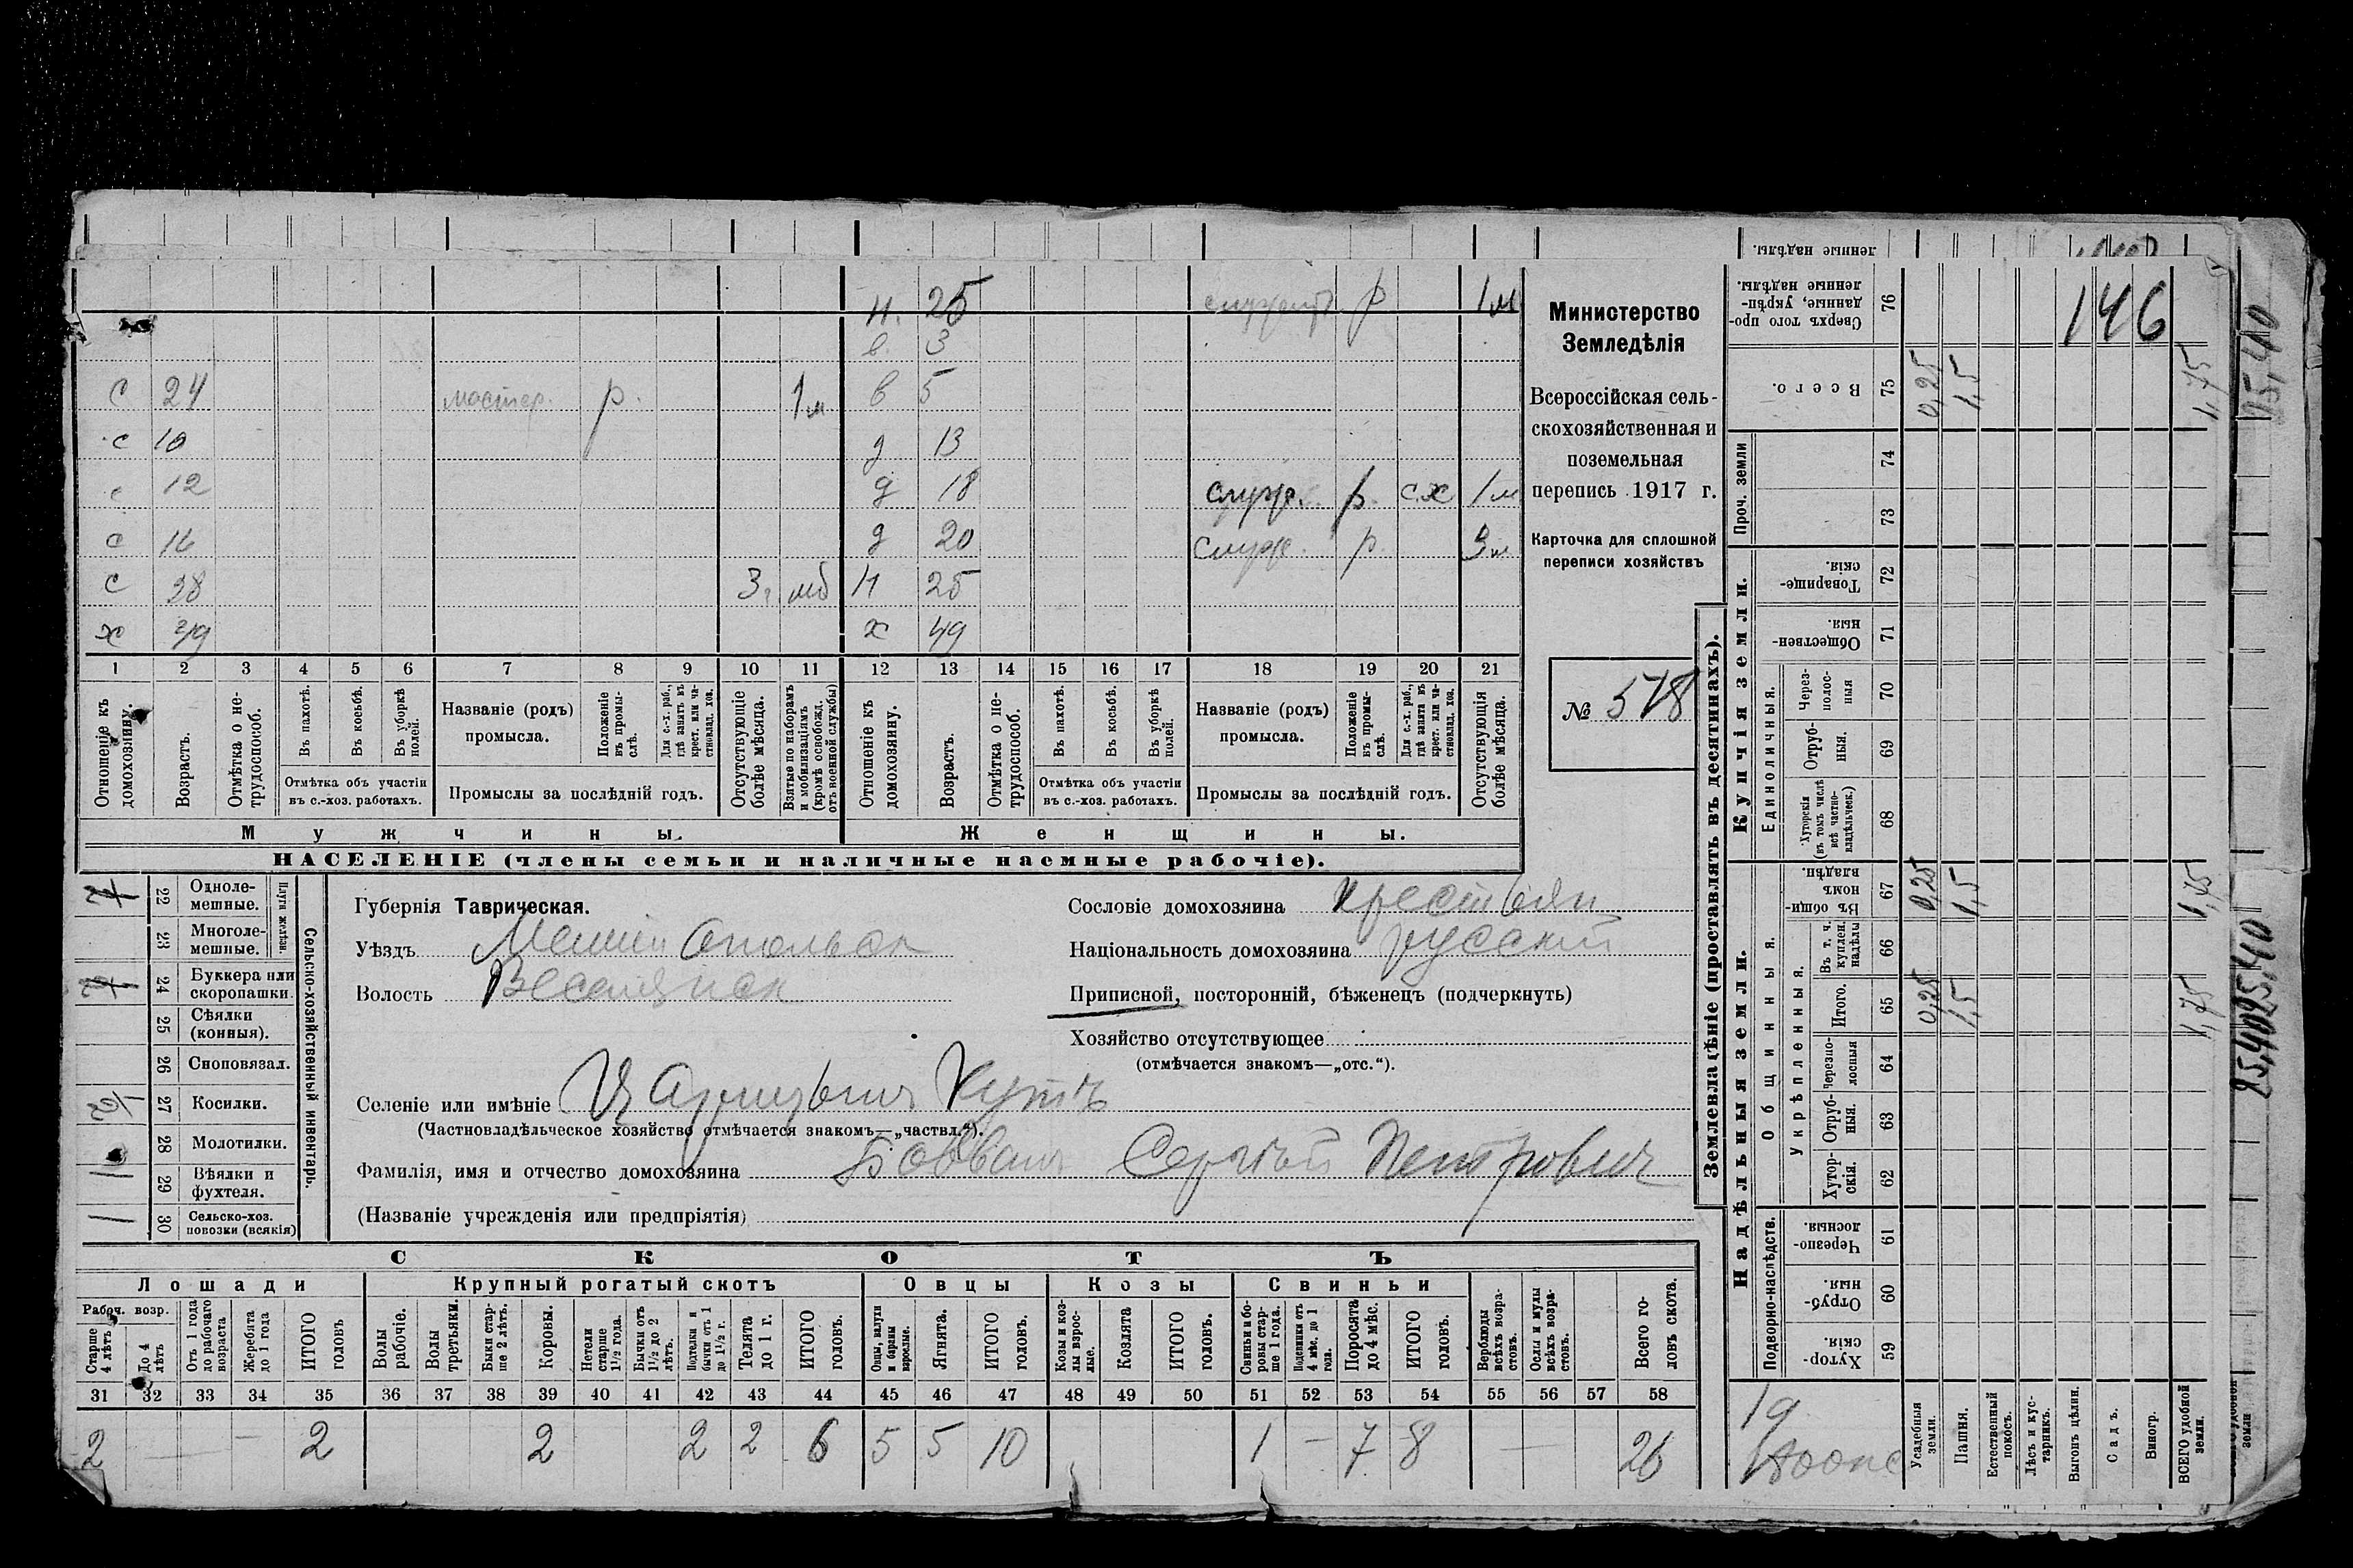 н. 25 р 1м
в. 3
с 24 мастер. р. 1м в 5
с 10 д 13
с 12 д 18 служ. р. с.х 1м
с 16 д 20 служ. р. 3м
с 28 3. мб н 25
х 49 х 49
1 2 3 4 5 6 7 8 9 10 11 12 13 14 15 16 17 18 19 20 21
Отношеніе къ домохозяину.
Возрастъ.
Отмѣтка о не-трудоспособ.
Въ пахотѣ.
Въ косьбѣ.
Въ уборкѣ полей.
Отмѣтка объ участіи въ с.-хоз. работахъ.
Названіе (родъ) промысла.
Положеніе въ промы-слѣ.
Для с.-х. раб., гдѣ занятъ въ крест. или ча-стновлад. хоз.
Промыслы за послѣдній годъ.
Отсутствующіе болѣе мѣсяца.
Взятые по наборамъ и мобилизаціямъ (кромѣ освобожд. отъ военной службы)
Отношеніе къ домохозяину.
Возрастъ.
Отмѣтка о не-трудоспособ.
Въ пахотѣ.
Въ косьбѣ.
Въ уборкѣ полей.
Отмѣтка объ участіи въ с.-хоз. работахъ.
Названіе (родъ) промысла.
Положеніе въ промы-слѣ.
Для с.-х. раб., гдѣ занята въ крест. или ча-стновлад. хоз.
Промыслы за послѣдній годъ.
Отсутствующія болѣе мѣсяца.
Мужчины. Женщины.
НАСЕЛЕНІЕ (члены семьи и наличные наемные рабочіе).
Министерство
Земледѣлія
Всероссійская сель-
скохозяйственная и
поземельная
перепись 1917 г.
Карточка для сплошной
переписи хозяйствъ
№ 578
22 Одноле-мешные.
23 Многоле-мешные.
Плуги желѣзн.
24 Буккера или скоропашки.
25 Сѣялки (конныя).
26 Сноповязал.
27 Косилки.
28 Молотилки.
1 29 Вѣялки и фухтеля.
1 30 Сельско-хоз. повозки (всякія)
Сельско-хозяйственный инвентарь.
Губернія Таврическая.
Уѣздъ Мелитопольск
Волость Веселянск
Сословіе домохозяина крестьян
Національность домохозяина русскій
Приписной, посторонній, бѣженецъ (подчеркнуть)
Хозяйство отсутствующее
(отмѣчается знакомъ—„отс.“).
Селеніе или имѣніе
(Частновладѣльческое хозяйство отмѣчается знакомъ—„частвл.“).
Фамилія, имя и отчество домохозяина Сергѣй Петрович
(Названіе учрежденія или предпріятія)
СКОТЪ
Лошади Крупный рогатый скотъ Овцы Козы Свиньи
Рабоч. возр.
Старше 4 лѣтъ
До 4 лѣтъ
Отъ 1 года до рабочаго возраста
Жеребята до 1 года
ИТОГО головъ
Волы рабочіе.
Волы третьяки.
Быки стар-ше 2 лѣтъ.
Коровы.
Нетели старше 1½ года.
Бычки отъ 1½ до 2 лѣтъ.
Подтелки и бычки отъ 1 до 1½ г.
Телята до 1 г.
ИТОГО головъ.
Овцы, валухи и бараны взрослые.
Ягнята.
ИТОГО головъ.
Козы и коз-лы взрос-лые.
Козлята
ИТОГО головъ.
Свиньи и бо-ровы стар-ше 1 года.
Подсвинки отъ 4 мѣс. до 1 года.
Поросята до 4 мѣс.
ИТОГО головъ.
Верблюды всѣхъ возра-стовъ.
Ослы и мулы всѣхъ возра-стовъ.
Всего го-ловъ скота.
31 32 33 34 35 36 37 38 39 40 41 42 43 44 45 46 47 48 49 50 51 52 53 54 55 56 57 58
2 — — 2 2 2 2 6 5 5 10 1 — 7 8 — 26
Землевладѣніе (проставлять въ десятинахъ).
Купчія земли.
Надѣльныя земли.
ленные надѣлы.
Сверхъ того про-данные, укрѣп-ленные надѣлы. 76 146
Всего. 75 0,25 1,5 1,75
Проч. земли 74
73
Товарище-скія. 72
Обществен-ныя. 71
Единоличныя.
Через-полос-ныя 70
Отруб-ныя. 69
Хуторскія (въ томъ числѣ всѣ частно-владѣльческ.) 68
Общинныя.
Въ общи-номъ владѣн. 67 0,25 1,5 1,75
Укрѣпленныя.
Въ т. ч. куплен. надѣлы 66
Итого. 65 0,25 1,5 1,75
Черезпо-лосныя 64
Отруб-ныя. 63
Хутор-скія. 62
Подворно-наслѣдств.
Черезпо-лосныя 61
Отруб-ныя. 60
Хутор-скія. 59
19
Усадебныя земли.
Пашня.
Естественный покосъ.
Лѣсъ и кус-тарникъ.
Выгонъ цѣлин.
Садъ.
Виногр.
ВСЕГО удобной земли.
15,40